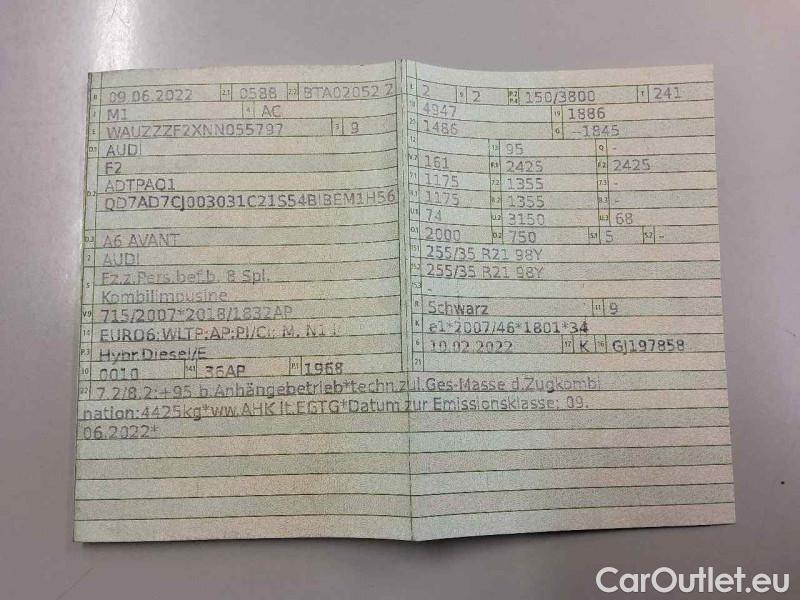 B 09.06.2022 2.1 0588 2.2 BTA02052 2
J M1 4 AC
E WAUZZZF2XNN055797 3 9
D.1 AUDI
F2
D.2 ADTPAQ1
QD7AD7CJ003031C21S54BIBEM1H56
D.3 A6 AVANT
2 AUDI
5 Fz.z.Pers.bef.b. 8 Spl.
Kombilimousine
V.9 715/2007*2018/1832AP
14 EURO6;WLTP;AP;PI/CI; M, N1 I
P.3 Hybr.Diesel/E
10 0010 14.1 36AP P.1 1968
22 7.2/8.2:+95 b.Anhängebetrieb*techn.zul.Ges-Masse d.Zugkombi
nation:4425kg*ww.AHK lt.EGTG*Datum zur Emissionsklasse: 09.
06.2022*
L 2 9 2 P.2 P.4 150/3800 T 241
18 4947 19 1886
20 1486 G -1845
12 - 13 95 Q -
V.7 161 F.1 2425 F.2 2425
7.1 1175 7.2 1355 7.3 -
8.1 1175 8.2 1355 8.3 -
U.1 74 U.2 3150 U.3 68
O.1 2000 O.2 750 S.1 5 S.2 -
15.1 255/35 R21 98Y
15.2 255/35 R21 98Y
15.3 -
R Schwarz 11 9
K e1*2007/46*1801*34
6 10.02.2022 17 K 16 GJ197858
21
CarOutlet.eu